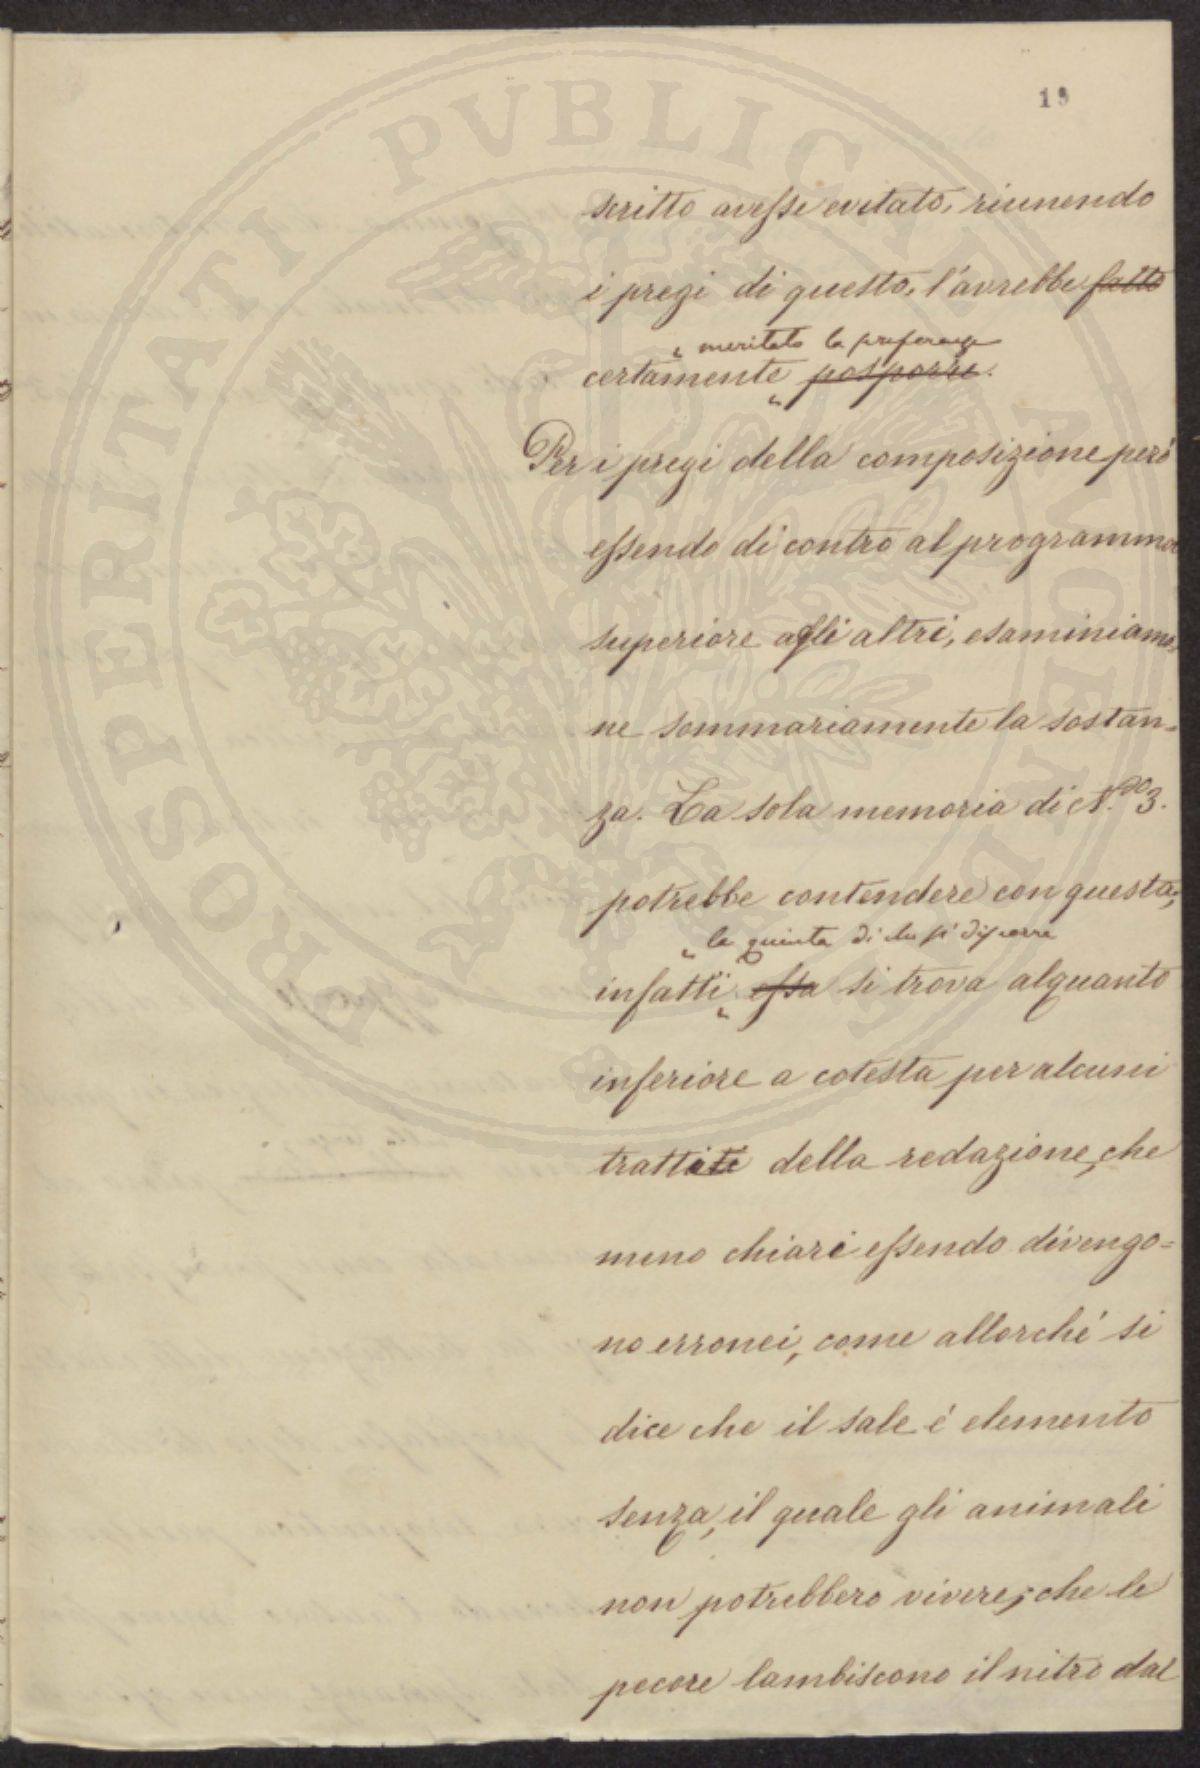 PROSPERITATI PVBLICAE AVGENDAE
scritto avesse evitato, riunendo
i pregi di questo, l'avrebbe fatto
meritato la preferenza
certamente posporre.
Per i pregi della composizione però
essendo di contro al programma
superiore agli altri, esaminiamo
ne sommariamente la sostan=
za. La sola memoria di N.ro 3.
potrebbe contendere con questa;
la quinta di cui si discorre
infatti essa si trova alquanto
inferiore a cotesta per alcuni
tratti della redazione, che
meno chiari essendo divengo=
no erronei, come allorché si
dice che il sale é elemento
senza, il quale gli animali
non potrebbero vivere; che le
pecore lambiscono il nitro dal